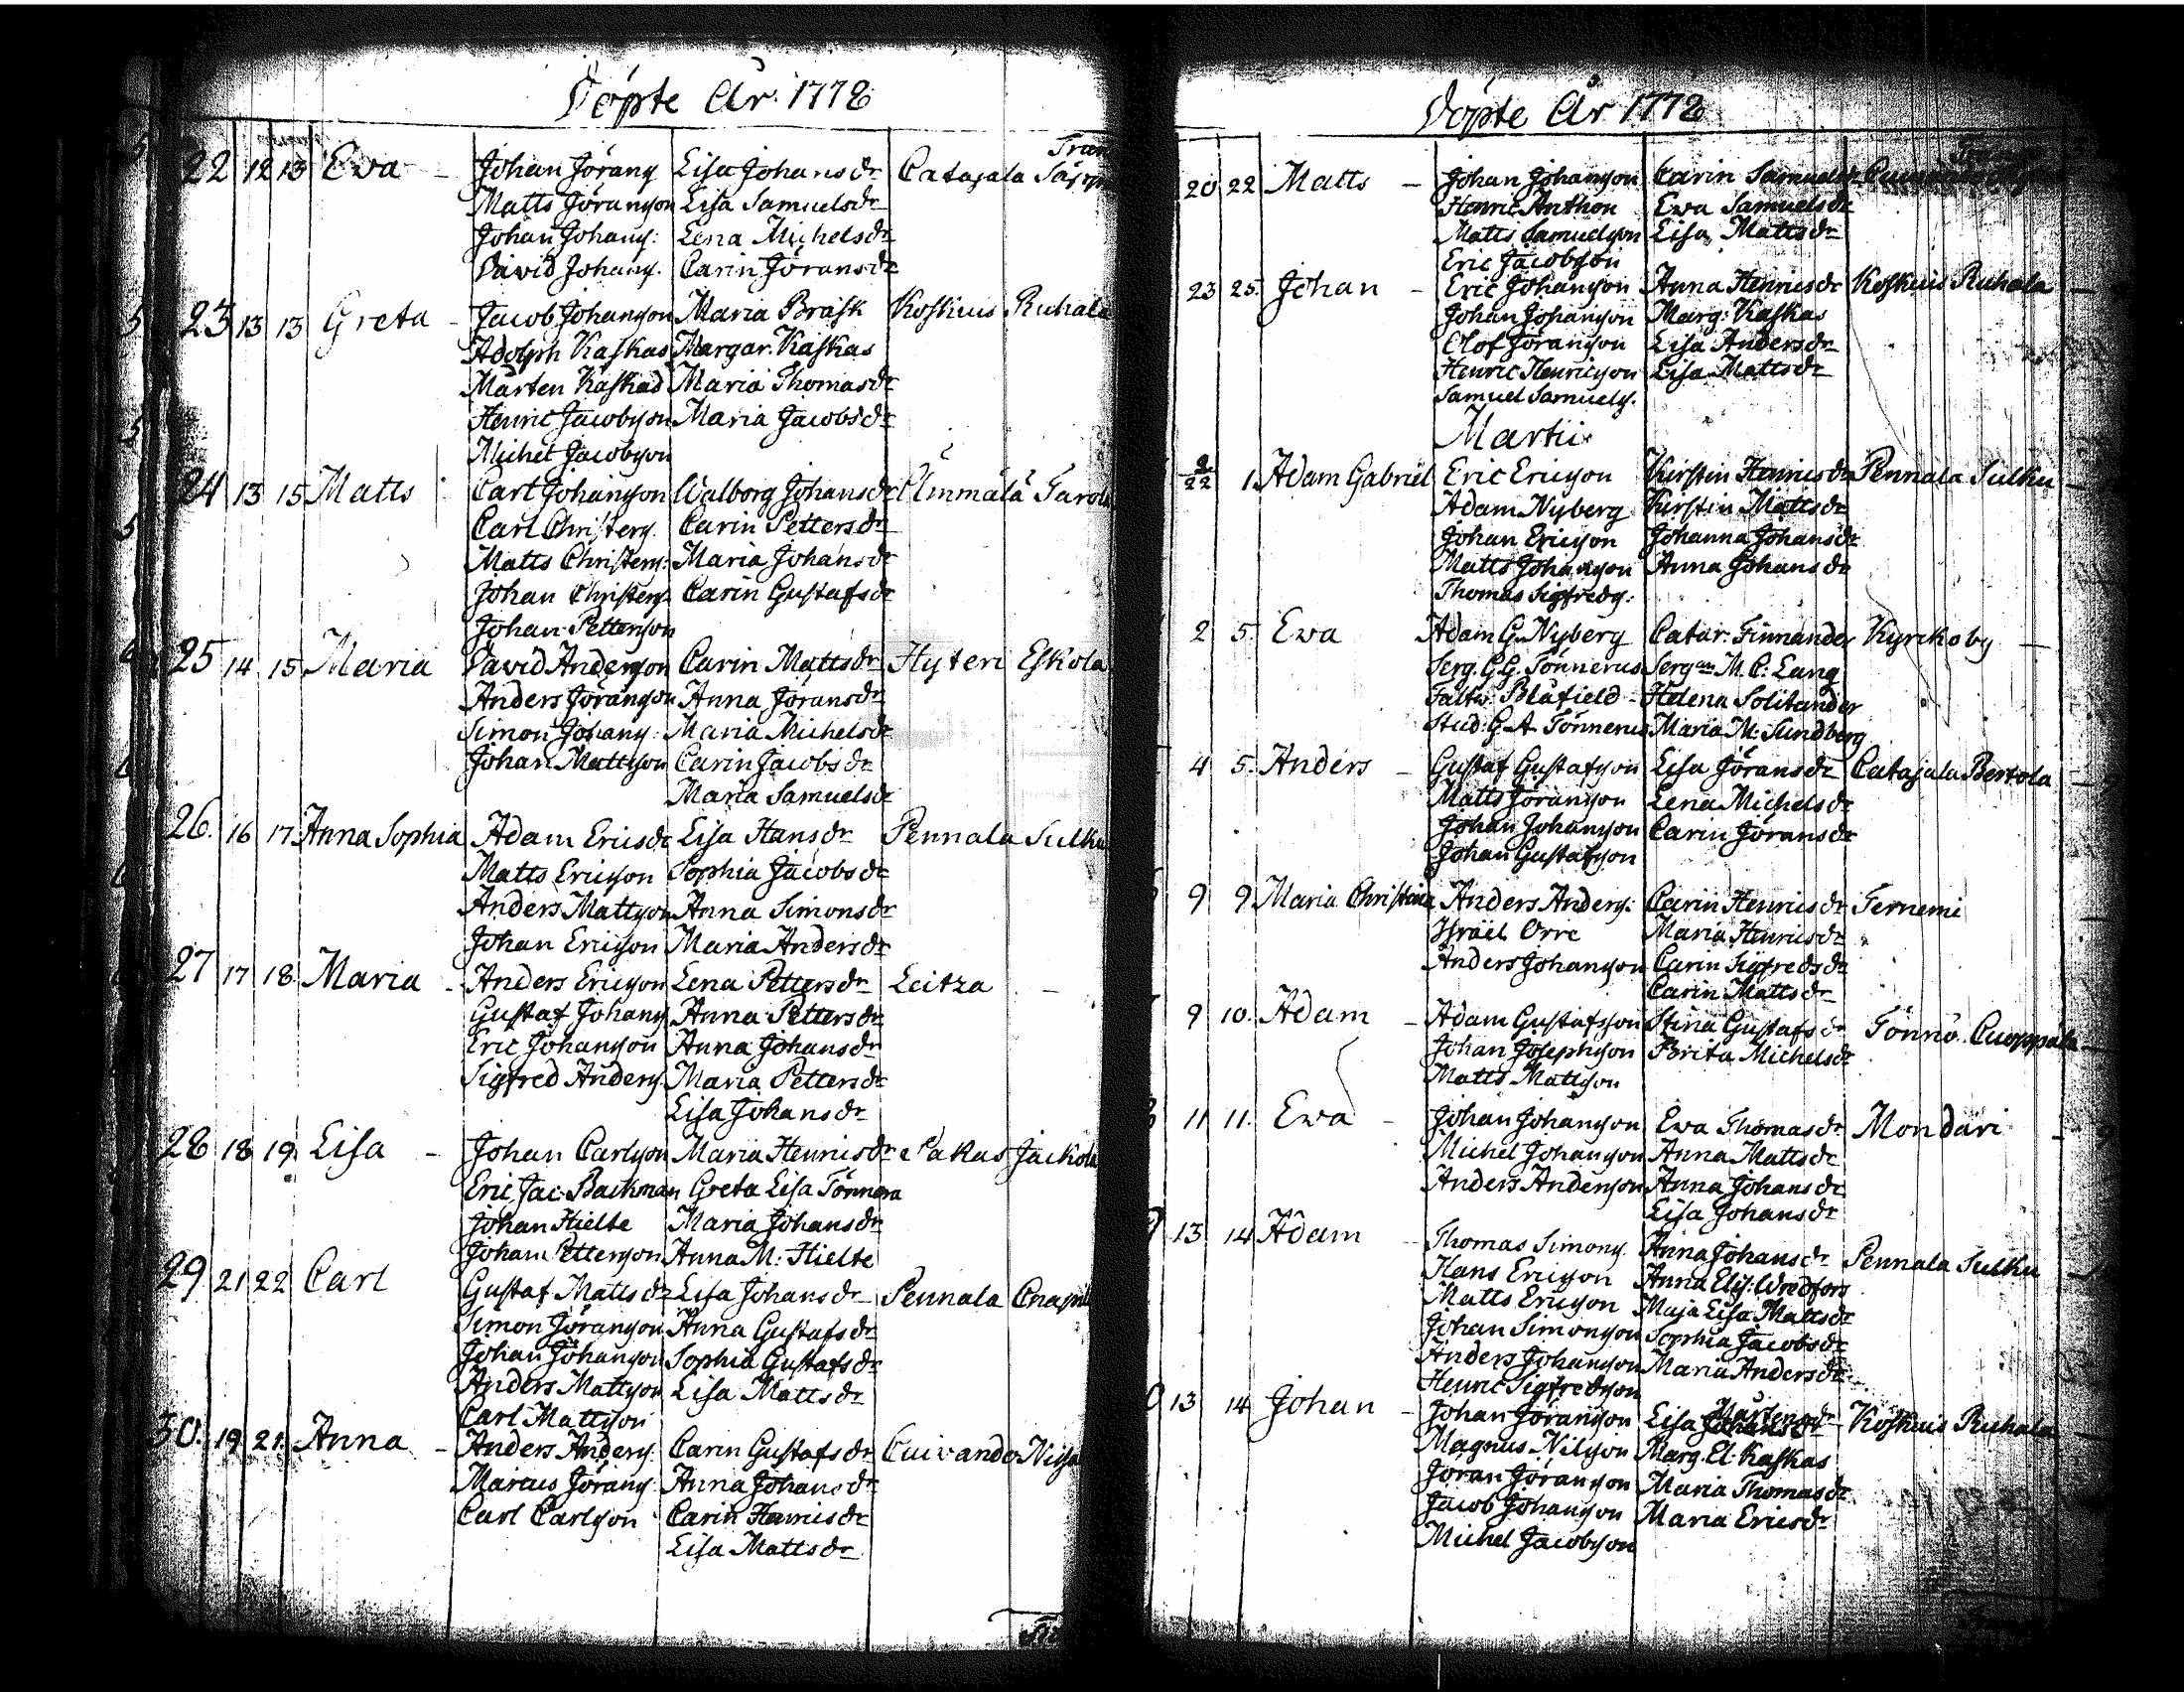 Döpte År. 1778
22 12 13 Eva - Johan Jörans Lisa Johansdr Catajala
Matts Jöransson Lisa Samuelsdr
Johan Johans: Lena Michelsdr
David Johans. Carin Jöransdr
23 13 13 Greta - Jacob Johansson Maria Brask Koskuis Ruhala
Adolph Kaskas Margar. Kaskas
Mårten Kaskas Maria Thomasdr
Henric Jacobsson Maria Jacobsdr
Michel Jacobsson
24 13 15 Matts Carl Johansson Walborg Johansdr
Carl Christers. Carin Pettersdr
Matts Christers: Maria Johansdr
Johan Christers. Carin Gustafsdr
Johan Pettersson
25 14 15 Maria David Andersson Carin Mattsdr Hyteri Eskola
Anders Jöransson Anna Jöransdr
Simon Johans: Maria Michelsdr
Johan Mattsson Carin Jacobsdr
Maria Samuelsdr
26. 16 17 Anna Sophia Adam Ericsdr Lisa Hansdr Pennala Sulku
Matts Ericsson Sophia Jacobsdr
Anders Mattsson Anna Simonsdr
Johan Ericsson Maria Andersdr
27 17 18 Maria - Anders Ericsson Lena Pettersdr Leitza -
Gustaf Johans Anna Pettersdr
Eric Johansson Anna Johansdr
Sigfred Anders. Maria Pettersdr
Lisa Johansdr
28 18 19. Lisa - Johan Carlsson Maria Henricsdr Pakas Jackola
Eric Jac: Backman Greta Lisa
Johan Hielte Maria Johansdr
Johan Pettersson Anna M: Hielte
29 21 22 Carl Gustaf Mattsdr Lisa Johansdr Pennala
Simon Jöransson Anna Gustafsdr
Johan Johansson Sophia Gustafsdr
Anders Mattsson Lisa Mattsdr
Carl Mattsson
30. 19 21. Anna - Anders Anders. Carin Gustafsdr Cuivando
Marcus Jörans Anna Johansdr
Carl Carlsson Carin Henricsdr
Lisa Mattsdr
Döpte År 1778
20 22 Matts - Johan Johansson Carin Samuelsdr
Henric Anthon Eva Samuelsdr
Matts Samuelsson Lisa Mattsdr
Eric Jacobsson
23 25. Johan - Eric Johansson Anna Henricsdr Koskuis Ruhala
Johan Johansson Marg: Kaskas
Olof Jöransson Lisa Andersdr
Henric Henricsson Lisa Mattsdr
Samuel Samuels.
Martii
22 1. Adam Gabriel Eric Ericsson Kirstin Henricsdr Pennala Sulku
Adam Nyberg Kirstin Mattsdr
Johan Ericsson Johanna Johansdr
Matts Johansson Anna Johansdr
Thomas Sigfreds.
2 5. Eva Adam G. Nyberg Catar: Finnander Kyrkoby -
Serg. G. G. Tönnerus Serg:an M. C: Lang
Fältw. Blåfield - Helena Solitander
Stud: G. A. Tönnerus Maria M: Sundberg
4 5. Anders - Gustaf Gustafsson Lisa Jöransdr Catajala Bertola
Matts Jöransson Lena Michelsdr
Johan Johansson Carin Jöransdr
Johan Gustafsson
9 9 Maria Christina Anders Anders: Carin Henricsdr Ternemi
Israel Orre Maria Henricsdr
Anders Johansson Carin Sigfredsdr
Carin Mattsdr
9 10. Adam - Adam Gustafsson Stina Gustafsdr Tönnö Cuoppala
Johan Josephsson Brita Michelsdr
Matts Mattsson
11 11. Eva - Johan Johansson Eva Thomasdr Mondari
Michel Johansson Anna Mattsdr
Anders Andersson Anna Johansdr
Lisa Johansdr
13 14 Adam Thomas Simons. Anna Johansdr Pennala Sulku
Hans Ericsson Anna Elis: Wredfors
Matts Ericsson Maja Lisa Mattsdr
Johan Simonsson Sophia Jacobsdr
Anders Johansson Maria Andersdr
Henric Sigfredsson
13 14 Johan - Johan Jöransson Lisa Mårtensdr Koskuis Ruhala
Magnus Nilsson Marg. El: Kaskas
Jöran Jöransson Maria Thomasdr
Jacob Johansson Maria Ericsdr
Michel Jacobsson